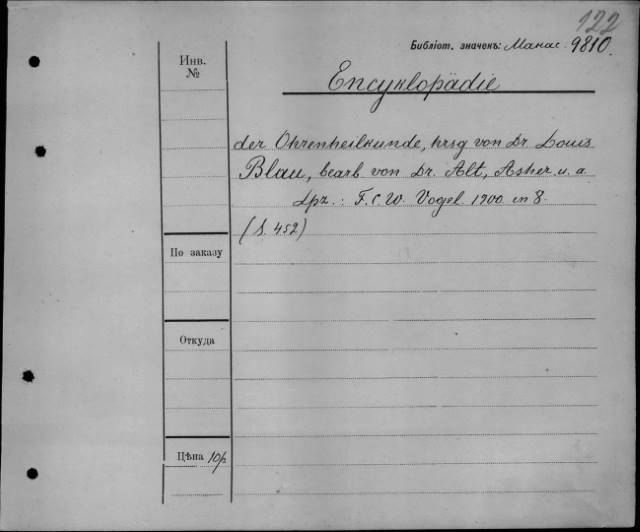 122
Библіот. значекъ: Манас. 9810.
Инв.
№
Encyklopädie
der Ohrenheilkunde, hrsg von Dr. Louis
Blau, bearb von Dr. Alt, Asher u. a.
Lpz.: F. C. W. Vogel. 1900. in 8.
(S. 452)
По заказу
Откуда
Цѣна 10р